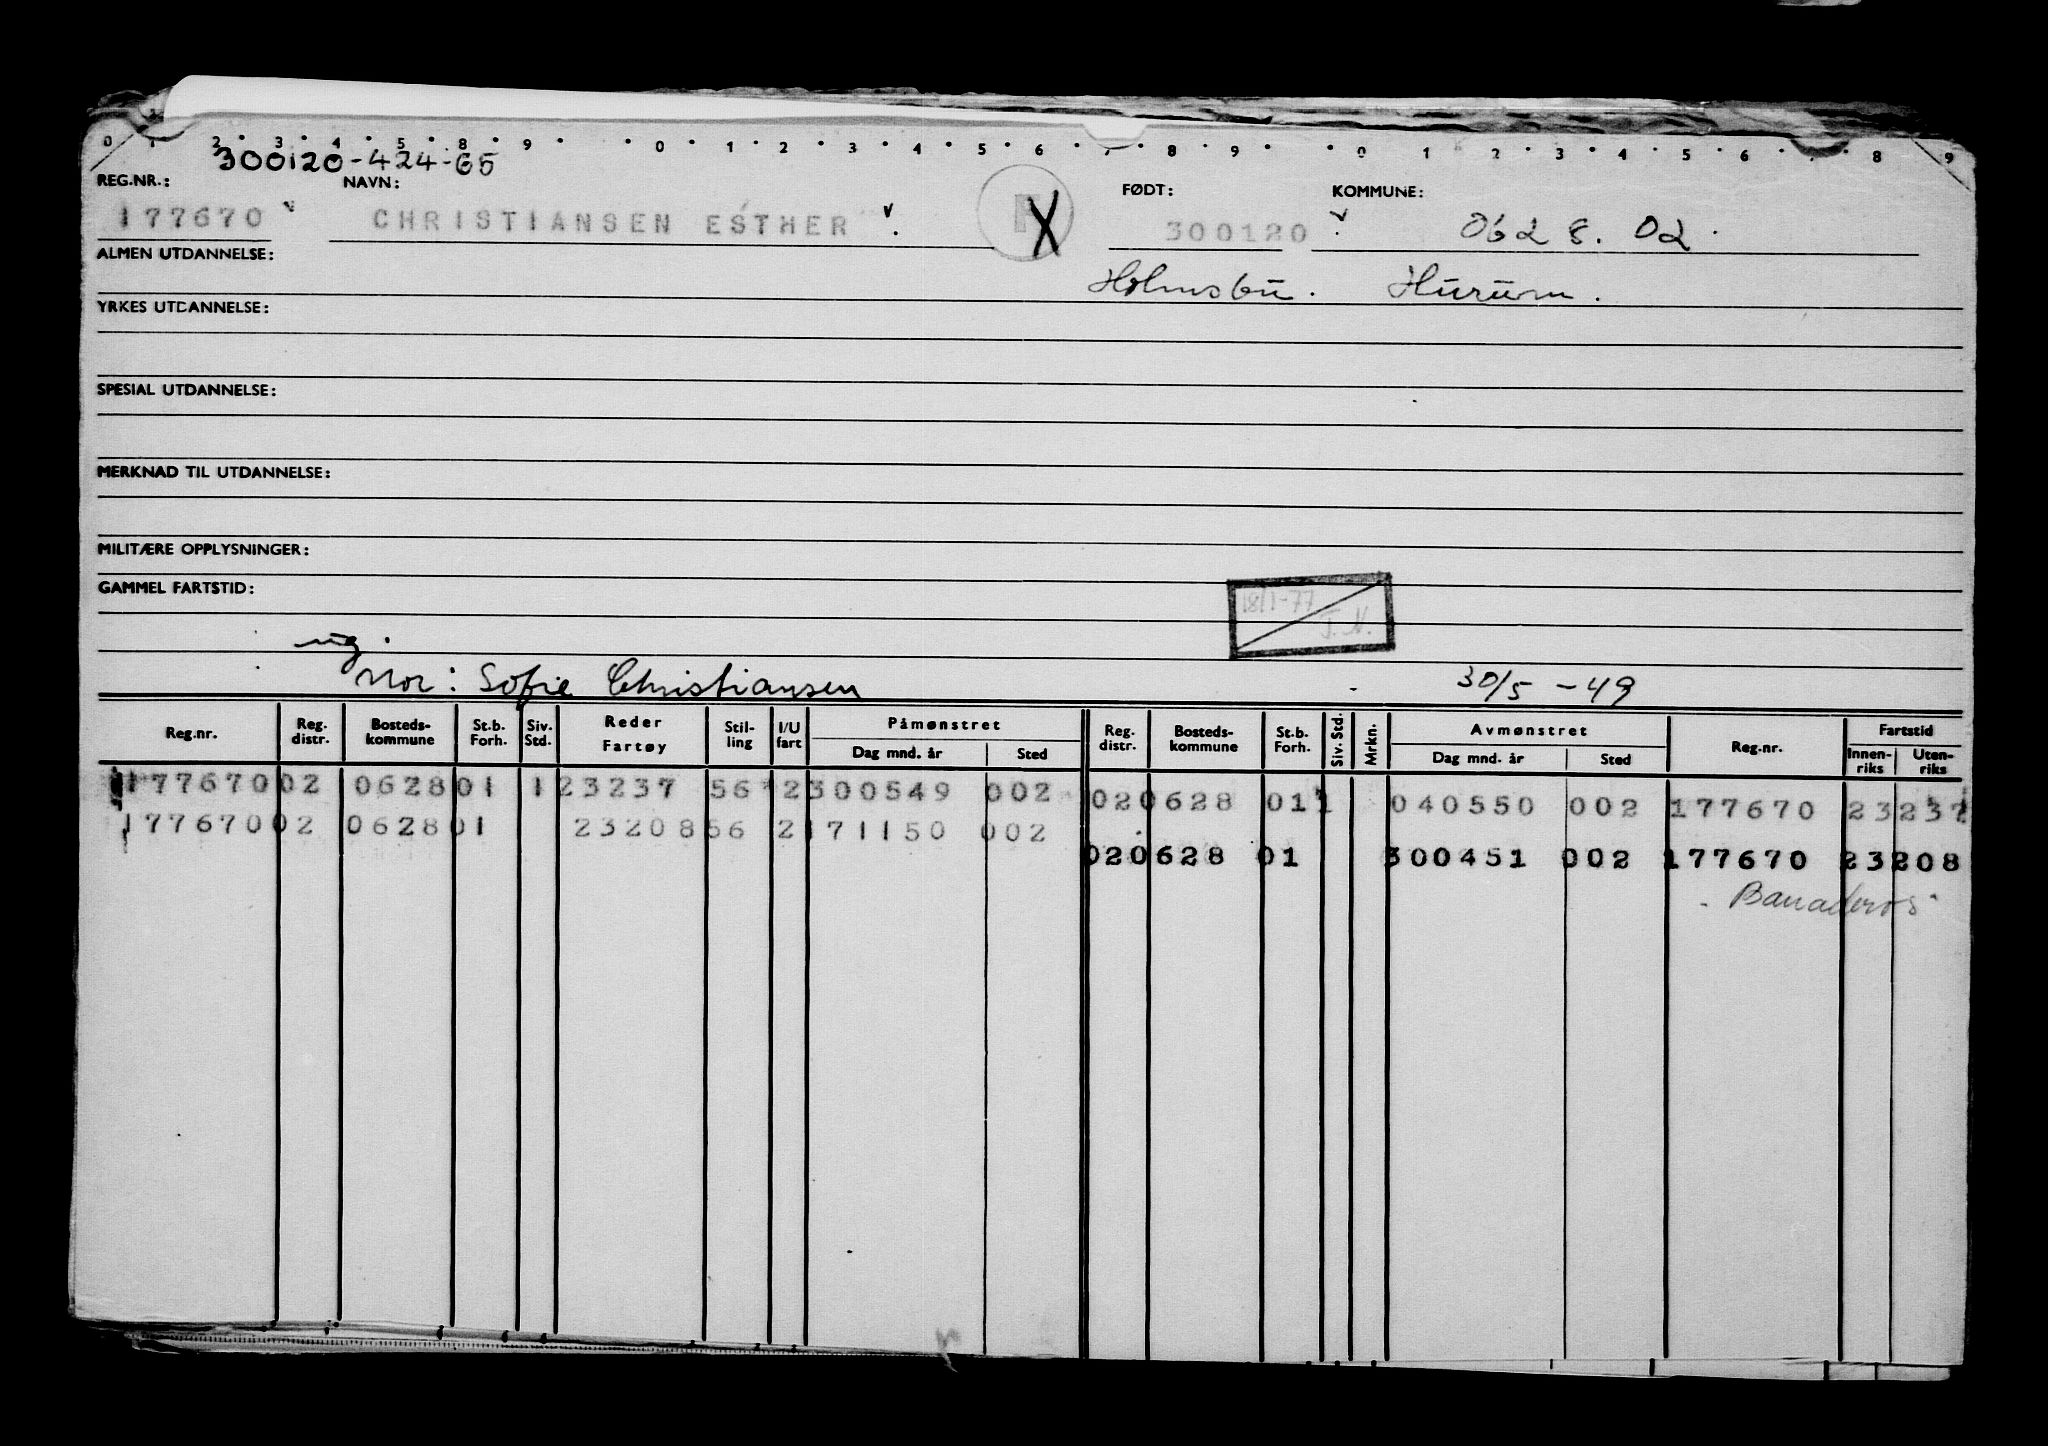 0 1 2 3 4 5 8 9 0 1 2 3 4 5 6 7 8 9 0 1 2 3 4 5 6 7 8 9
300120-424-65
REG.NR.: NAVN: FØDT: KOMMUNE:
177670 v CHRISTIANSEN ESTHER v. X 300120 v 0628.02.
ALMEN UTDANNELSE:
Holmsbu. Hurum.
YRKES UTDANNELSE:
SPESIAL UTDANNELSE:
MERKNAD TIL UTDANNELSE:
MILITÆRE OPPLYSNINGER:
GAMMEL FARTSTID:
18/1-77
J.N.
ug.
Mor: Sofie Christiansen 30/5 -49
Reg.nr. Reg. distr. Bosteds-kommune St.b. Forh. Siv. Std. Reder Fartøy Stil-ling I/U fart Påmønstret Dag mnd. år Sted Reg. distr. Bosteds-kommune St.b. Forh. Siv. Std. Mrkn. Avmønstret Dag mnd. år Sted Reg.nr. Fartstid Innen-riks Uten-riks
177670 02 0628 01 1 23237 56 2 300549 002 02 0628 01 1 040550 002 177670 23237
177670 02 0628 01 23208 56 2 171150 002
02 0628 01 300451 002 177670 23208
Banaderos